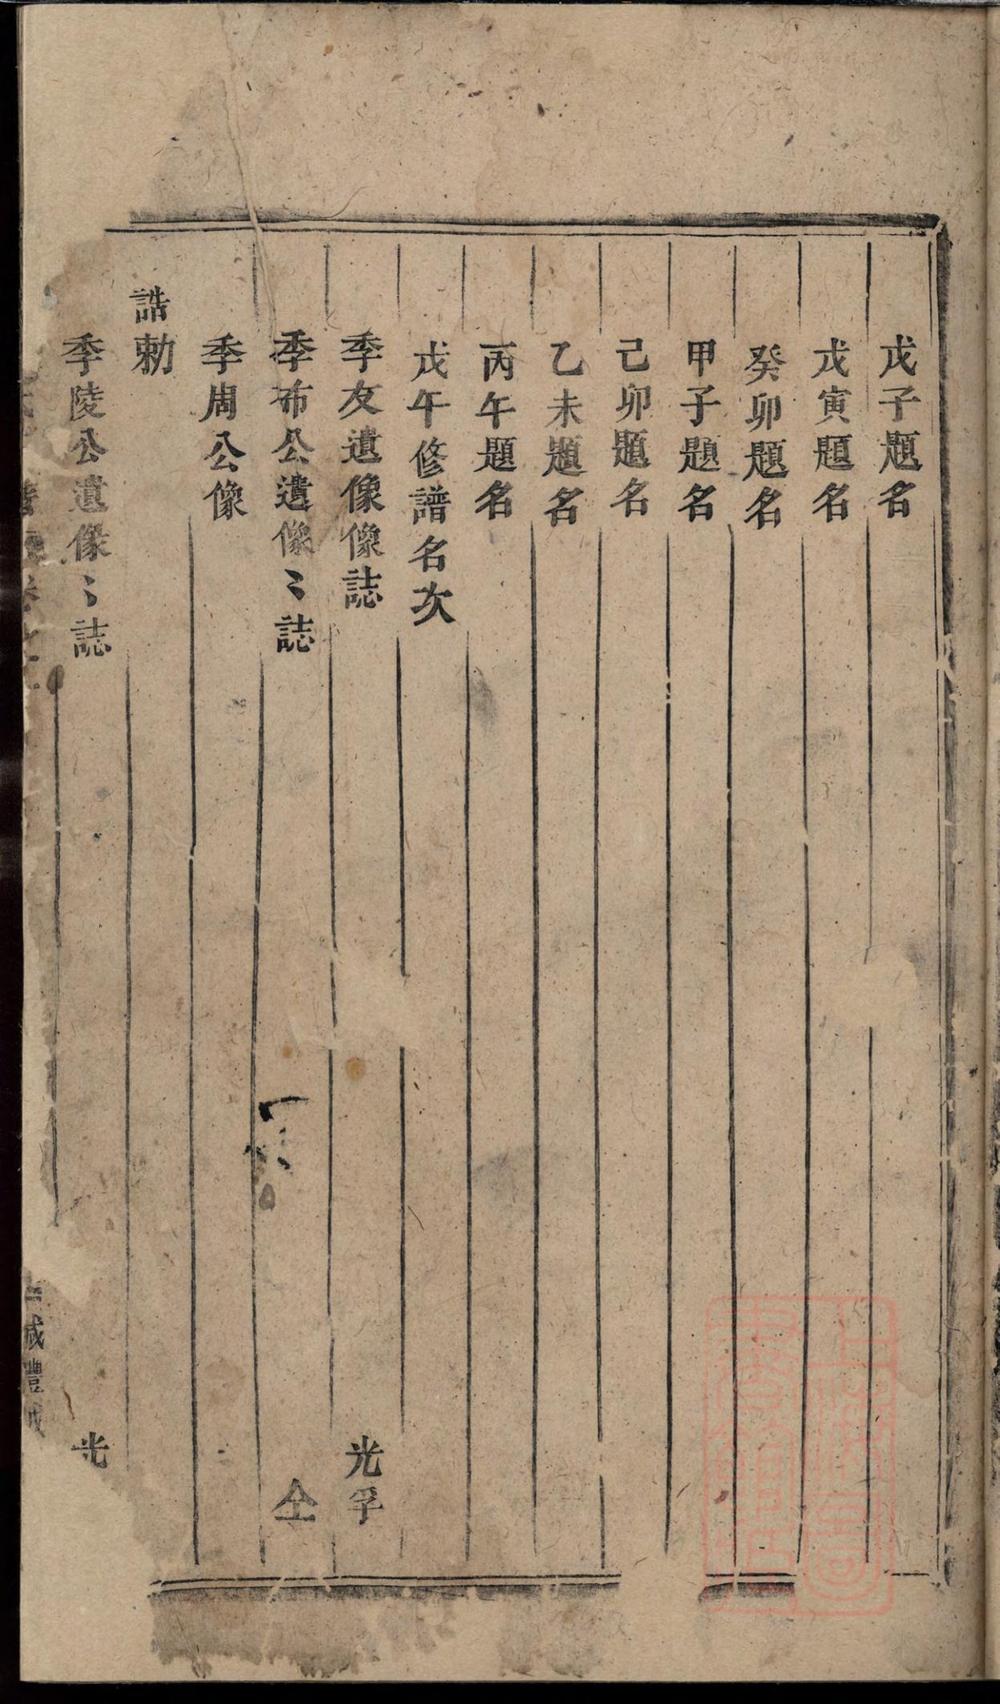 戊子題名
戊寅題名
癸卯題名
甲子題名
己卯題名
乙未題名
丙午題名
戊午修譜名次
季友遺像像誌 光孚
季布公遺像〻誌 仝
季周公像
誥勅
季陵公遺像〻誌 光
城豐城